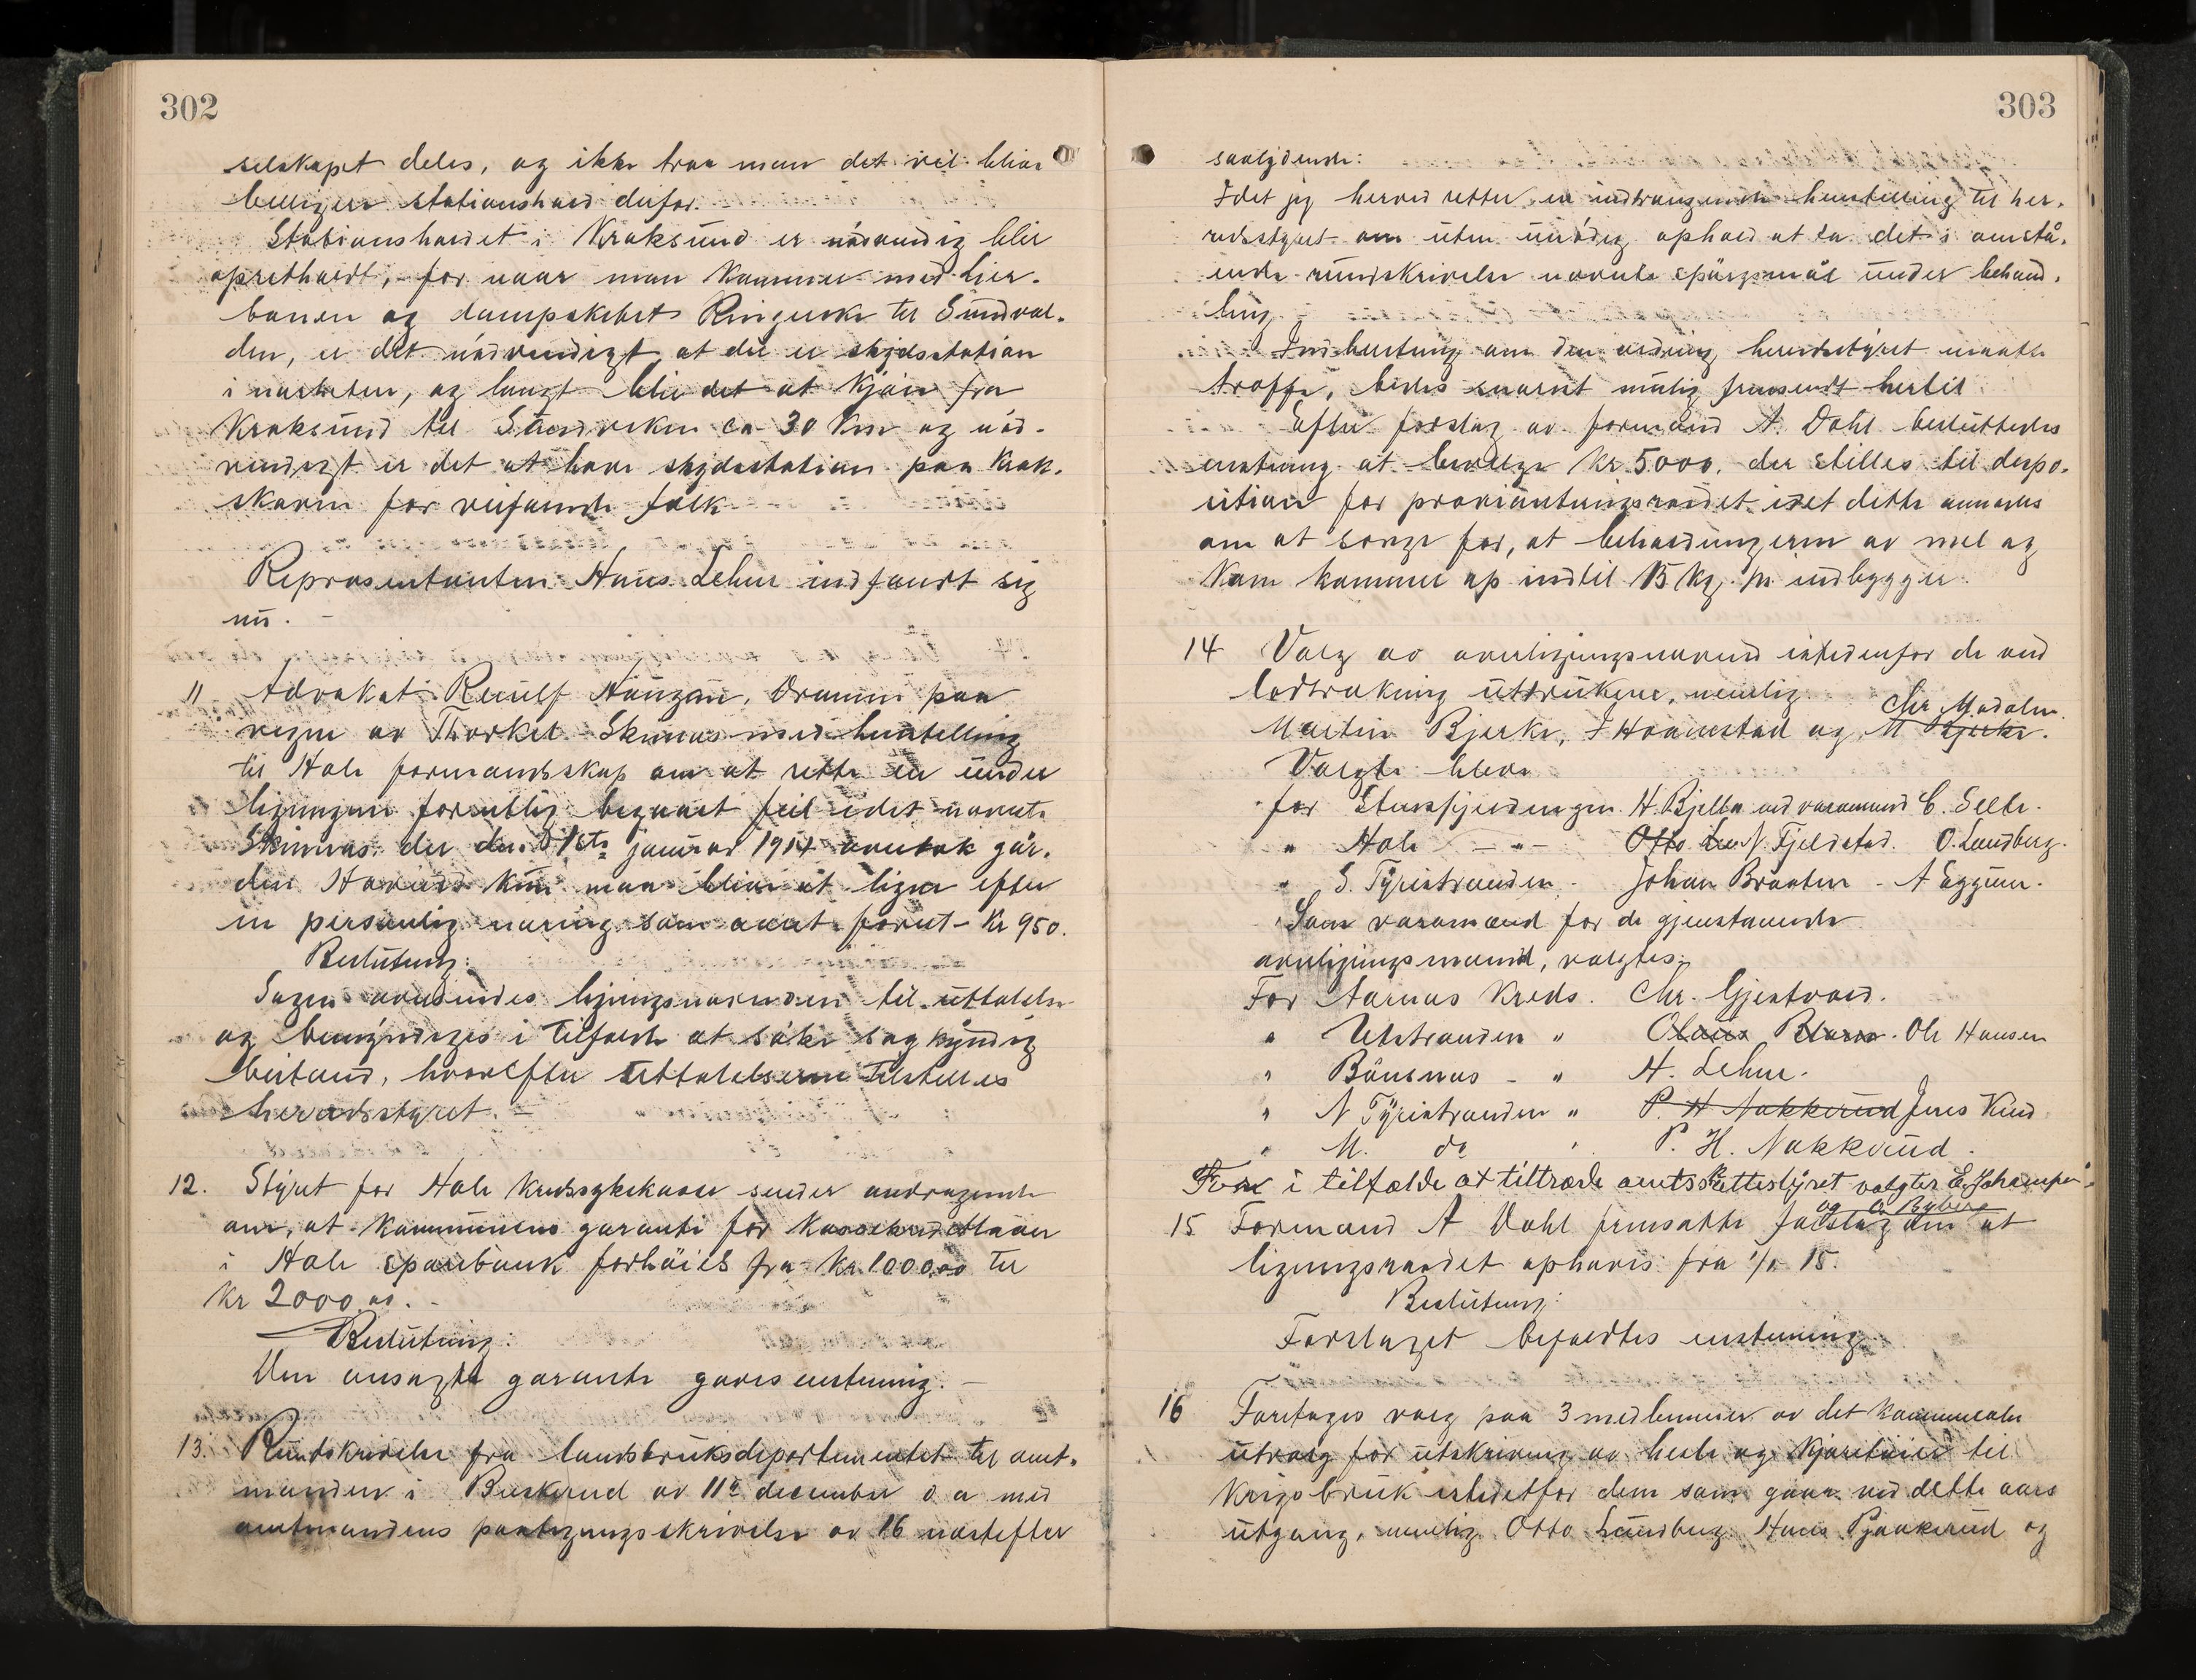 302
selskapet deles, og ikke tror man det vil blive
billigere stationshold derfor.
Stationsholdet i Kroksund er nødvendig blir
oprethold, for naar man kommer med Lier-
banen og dampskibet Ringerike til Sundvol-
den, er det nødvendigt at der er skydsstation
i nærheten, og langt blir det at kjøre fra
Kroksund til Sandviken ca 30 km og nød-
vendigt er det at have skydsstation paa Krok-
skoven for veifarende folk
Repræsentanten Hans Lehne indfandt sig
nu.
11 Advokat Hougen, Drammen paa
vegne av Thorkel Skinnes med henstilling
til Hole formandskap om at rette en under
ligningen forentlig begaaet feil idet nævnte
Skinnes der den 1ste januar 1914 overtok går-
den kun maa blive at ligne efter
en personlig næring som antat forut - Kr 950.
Beslutning:
Sagen oversendes ligningsnævnden til uttalelse
og bemyndiges i tilfælde at søke sagkyndig
bistand, hvorefter uttalelserne tilstilles
herredsstyret. -
12. Styret for Hole kredssykekasse sender andragende
om, at kommunens garanti for kassekreditlaan
i Hole sparebank forhøies fra Kr. 1000,00 til
Kr 2000,00. -
Beslutning:
Den ansøgte garanti gaves enstemmig. -
13. Rundskrivelse fra landbruksdepartementet til amt-
manden i Buskerud av 11te december d a med
amtmandens paategningsskrivelse av 16 næstefter
303
saalydende:
Idet jeg herved retter en indtrængende henstilling til her-
redsstyret om uten unødig ophold at ta det i omstå-
ende rundskrivelse nævnte spørgsmål under behand-
ling.
Indberetning om den ordning herredsstyret maatte
træffe, bedes snarest mulig fremsendt hertil
Efter forslag av formand A. Dahl besluttedes
enstemmig at bevilge Kr 5000. der stilles til dispo-
sition for proviantungsraadet idet dette anmodes
om at sørge for, at beholdningerne av mel og
korn kommer op indtil 15 kg. pr indbygger.
14 Valg av overligningsnævnd istedenfor de ved
lodtrækning uttrukne, nemlig Chr. Modalen
Martin Bjerke, I Homestad og M Bjerke.
Valgte blev
for Stensfjerdingen H. Bjella med varamand C. Selte.
" Hole - " - Otto N. Fjeldstad. O. Lundberg.
" S. Tyristranden - Johan Braaten - A Eggum.
Som varamænd for de gjenstaaende
overligningsmænd, valgtes:
For Aarnes Kreds. Chr. Gjestvold.
" Utstranden " Ole Hansen
" Bönsnes - " H. Lehne.
" N Tyristranden " P. H Nakkerud Jens Kind
" M. do " P. H. Nakkerud.
For i tilfælde at tiltræde amtsskattestyret valgtes E. Schamper
og O. Byberg
15 Formand A Dahl fremsatte forslag om at
ligningsraadet ophæves fra 1/1 15.
Beslutning:
Forslaget befaldtes enstemmig.
16 Foretages valg paa 3 medlemmer av det kommunale
utvalg for utskrivning av heste og kjøretøier til
krigsbruk istedetfor dem som gaar ved dette aars
utgang, nemlig Otto Lundberg Hans Pjaakerud og